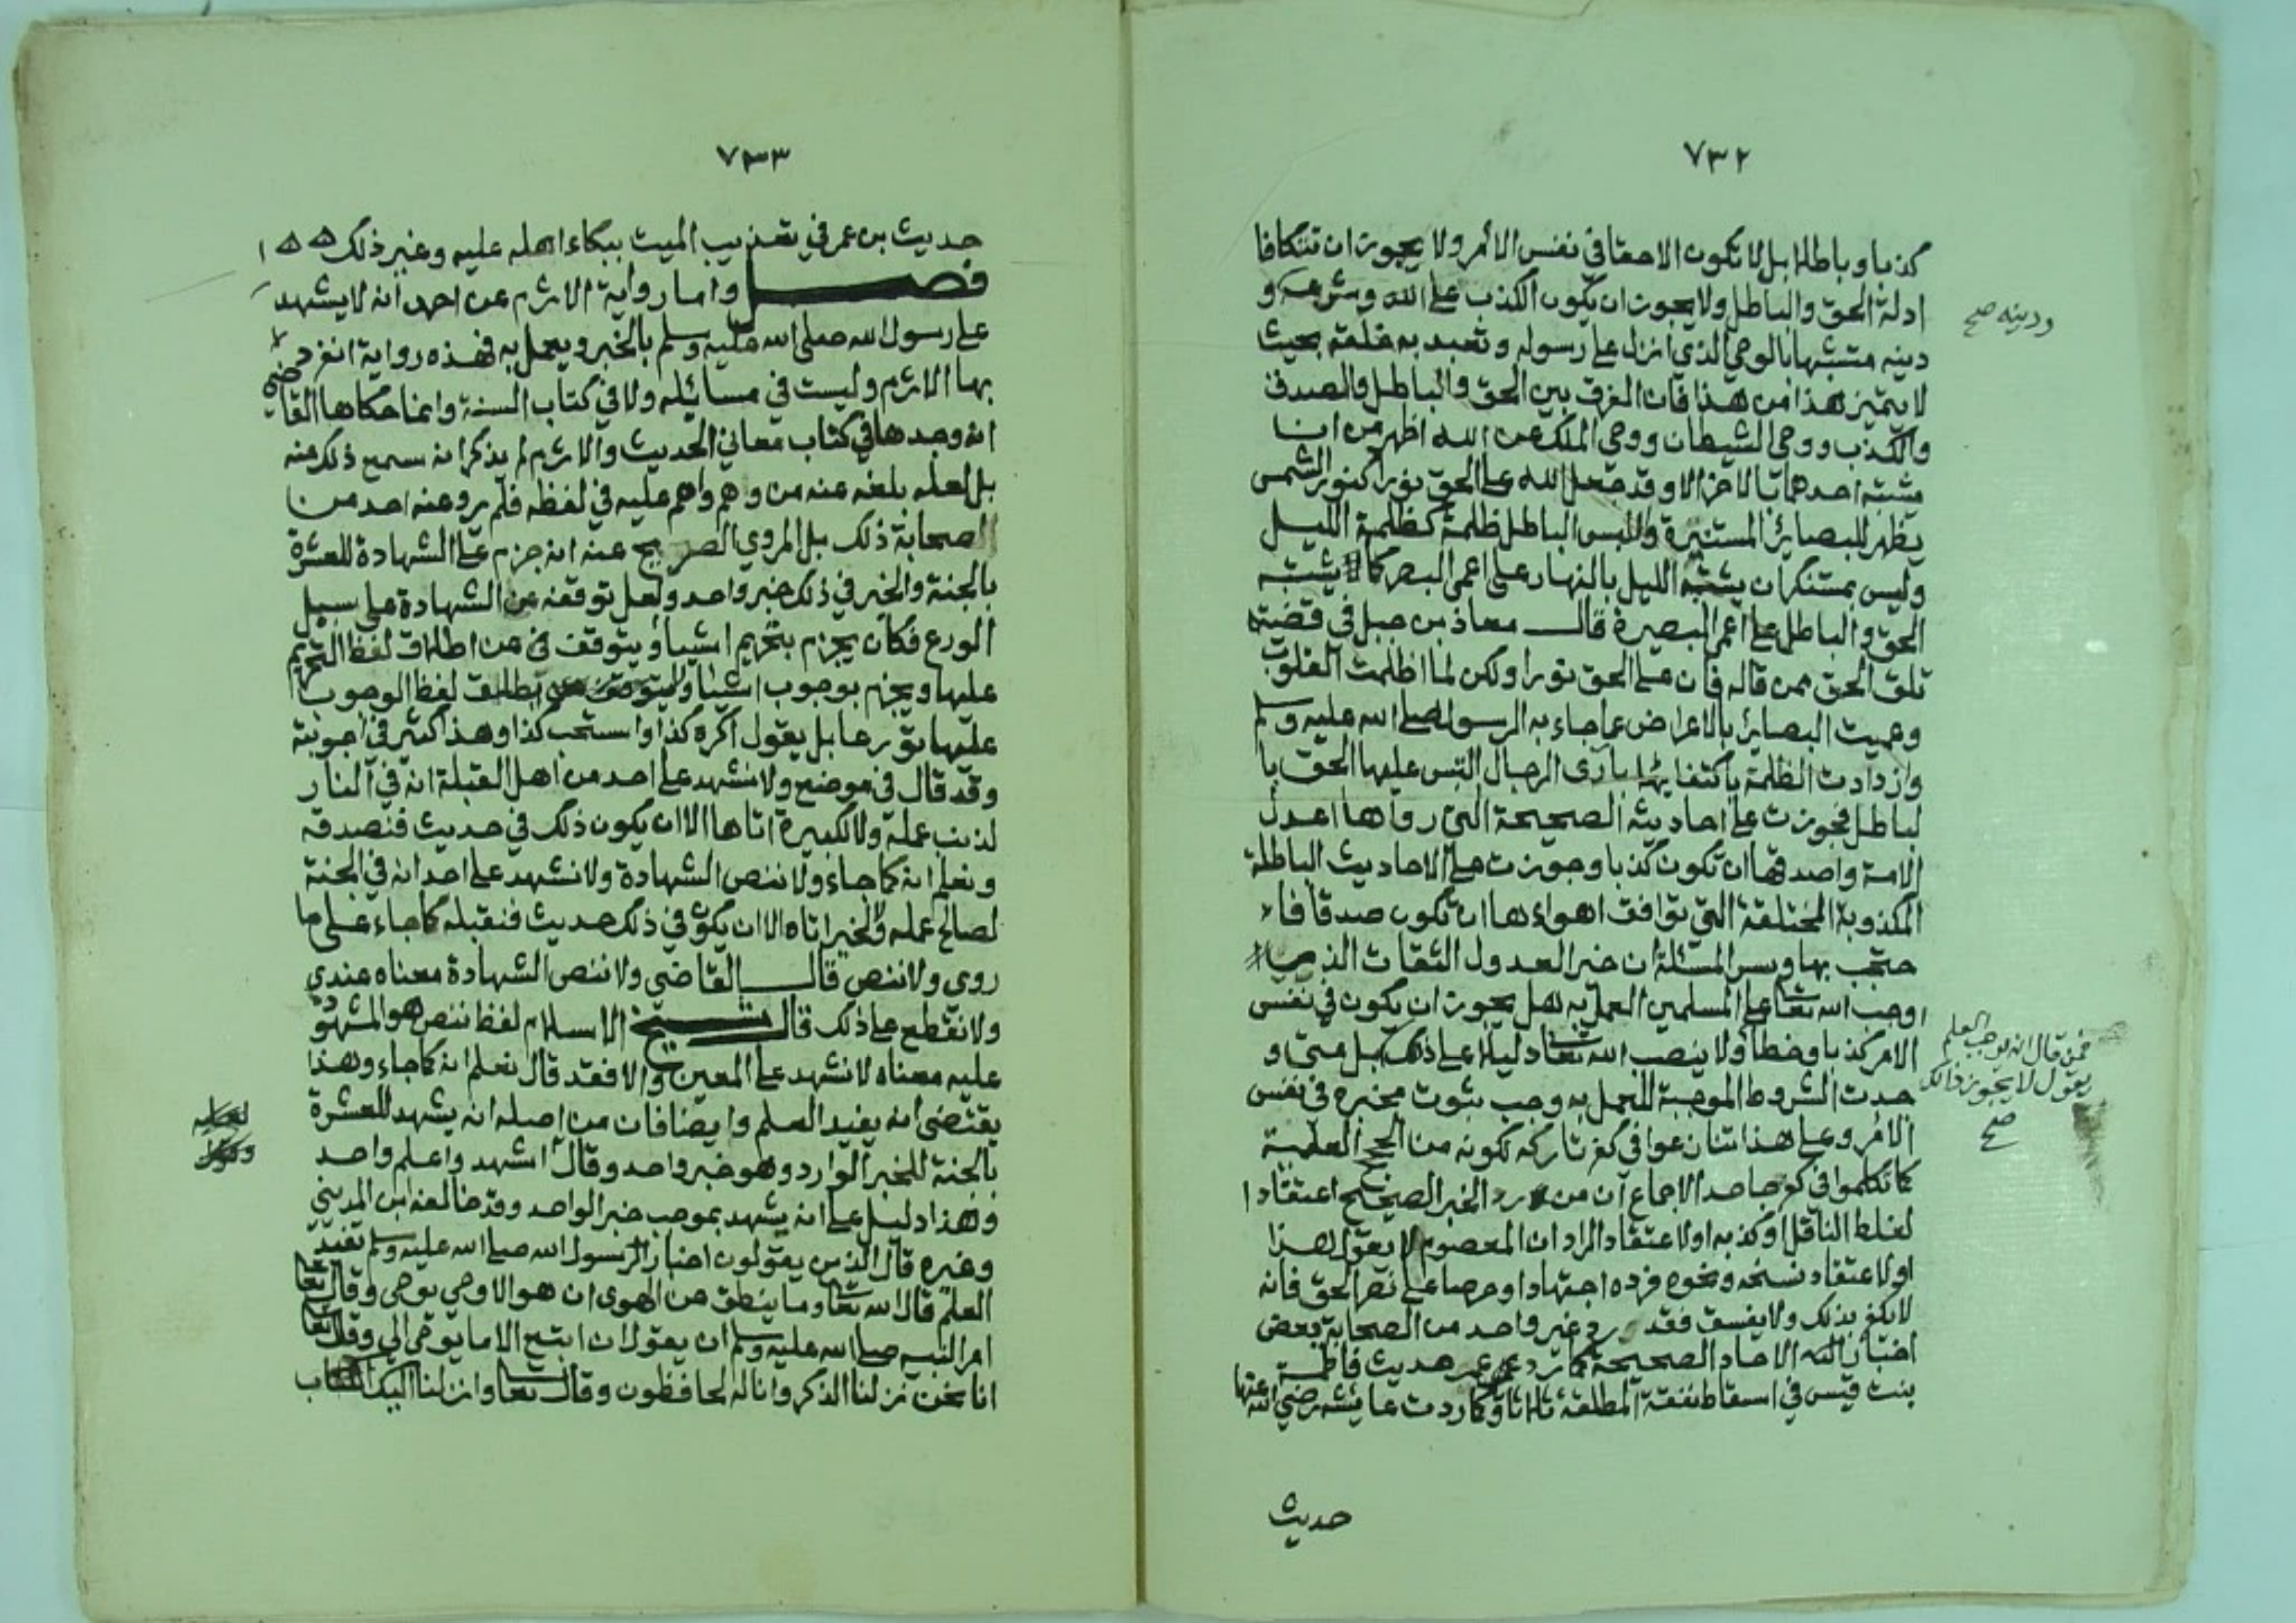 ٧٣٢
كذبا وباطلا بل لا تكون الا حقا في نفس الأمر ولا يجوز ان تتكافا
ادلة الحق والباطل ولا يجوز ان يكون الكذب على الله وشرعه و
ودينه صح
دينه متشبها بالوحي الذي انزله على رسوله وتعبد به خلقه بحيث
لا يتميز هذا من هذا فان الفرق بين الحق والباطل والصدق
والكذب ووحي الشيطان ووحي الملك عن الله اظهر من ان
يشتبه احدهما بالاخر الا وقد جعل الله على الحق نورا كنور الشمس
يظهر للبصائر المستنيرة والبس الباطل ظلمة كظلمة الليل
وليس بمستنكر ان يشتبه الليل بالنهار على اعمى البصر كما يشتبه
الحق والباطل على اعمى البصيرة قال معاذ بن جبل في قضيته
تلق الحق ممن قاله فان على الحق نورا ولكن لما اظلمت القلوب
وعميت البصائر بالاعراض عما جاء به الرسول صلى الله عليه وسلم
وازدادت الظلمة باكتفائها بارى الرجال التبس عليها الحق با
لباطل فجوزت على احاديثه الصحيحة التي رواها اعدل
الامة واصدقها ان تكون كذبا وجوزت على الاحاديث الباطلة
المكذوبة المختلقة التي توافق اهواءها ان تكون صدقا فا
حتجت بها وسر المسئلة ان خبر العدول الثقات الذي
اوجب الله تعا على المسلمين العمل به هل يجوز ان يكون في نفس
الامر كذبا وخطأ ولا ينصب الله تعا دليلا على ذلك بل متى و
فمن قال انه يوجب العلم
يقول لا يجوز ذالك
صح
جدت الشروط الموجبة للعمل به وجب ثبوت مخبره في نفس
الامر وعلى هذا تنازعوا في كفر تاركه لكونه من الحجج العلمية
كما تكلموا في كفر جاحد الاجماع ان من رد الخبر الصحيح اعتقادا
لغلط الناقل او كذبه او لاعتقاد الراد ان المعصوم لا يقول هذا
او لاعتقاد نسخه ونحوه فرده اجتهادا وحرصا على نصر الحق فانه
لا يكفر بذلك ولا يفسق فقد رد غير واحد من الصحابة بعض
اخبار الاحاد الصحيحة كما رد عمر حديث فاطمة
بنت قيس في اسقاط نفقة المطلقة ثلاثا وكما ردت عايشه رضي الله عنها
حديث
٧٣٣
حديث بن عمر في تعذيب الميت ببكاء اهله عليه وغير ذلك
فصل واما رواية الاثرم عن احمد انه لا يشهد
على رسول الله صلى الله عليه وسلم بالخبر ويعمل به فهذه رواية انفرد
بها الاثرم وليست في مسائله ولا في كتاب السنة وانما حكاها القاضي
انه وجدها في كتاب معاني الحديث والاثرم لم يذكر انه سمع ذلك عنه
بل لعله بلغه عنه من وهم واهم عليه في لفظه فلم يرو عنه احد من
الصحابة ذلك بل المروي الصريح عنه انه جزم على الشهادة للعشرة
بالجنة والخبر في ذلك خبر واحد ولعل توقفه عن الشهادة على سبيل
الورع فكان يجزم بتحريم اشيا ويتوقف عن اطلاق لفظ التحريم
عليها ويجزم بوجوب اشيا ويطلق لفظ الوجوب
عليها تورعا بل يقول اكره كذا واستحب كذا وهذا كثير في اجوبته
وقد قال في موضع ولا نشهد على احد من اهل القبلة انه في النار
لذنب عمله ولا لكبيرة اتاها الا ان يكون ذلك في حديث فنصدقه
ونعلم انه كما جاء ولا ننص الشهادة ولا نشهد على احد انه في الجنة
لصالح عمله ولا لخير اتاه الا ان يكون في ذلك حديث فنقبله كما جاء على ما
روى ولا ننص قال القاضي ولا ننص الشهادة معناه عندي
ولا نقطع على ذلك قال شيخ الاسلام لفظ ننص هو المشهود
عليه معناه لا نشهد على المعين والا فقد قال نعلم انه كما جاء وهذا
يقتضي انه يفيد العلم وايضا فان من اصله انه يشهد للعشرة
بالجنة للخبر الوارد وهو خبر واحد وقال اشهد واعلم واحد
وهذا دليل على انه يشهد بموجب خبر الواحد وقد خالفه ابن المديني
وغيره قال الذين يقولون اخبار الرسول صلى الله عليه وسلم تفيد
العلم قال الله تعا وما ينطق عن الهوى ان هو الا وحي يوحى وقال تعا
امر النبيه صلى الله عليه وسلم ان يقول ان اتبع الا ما يوحى الي وقال تعا
انا نحن نزلنا الذكر وانا له لحافظون وقال تعا وانزلنا اليك الكتاب